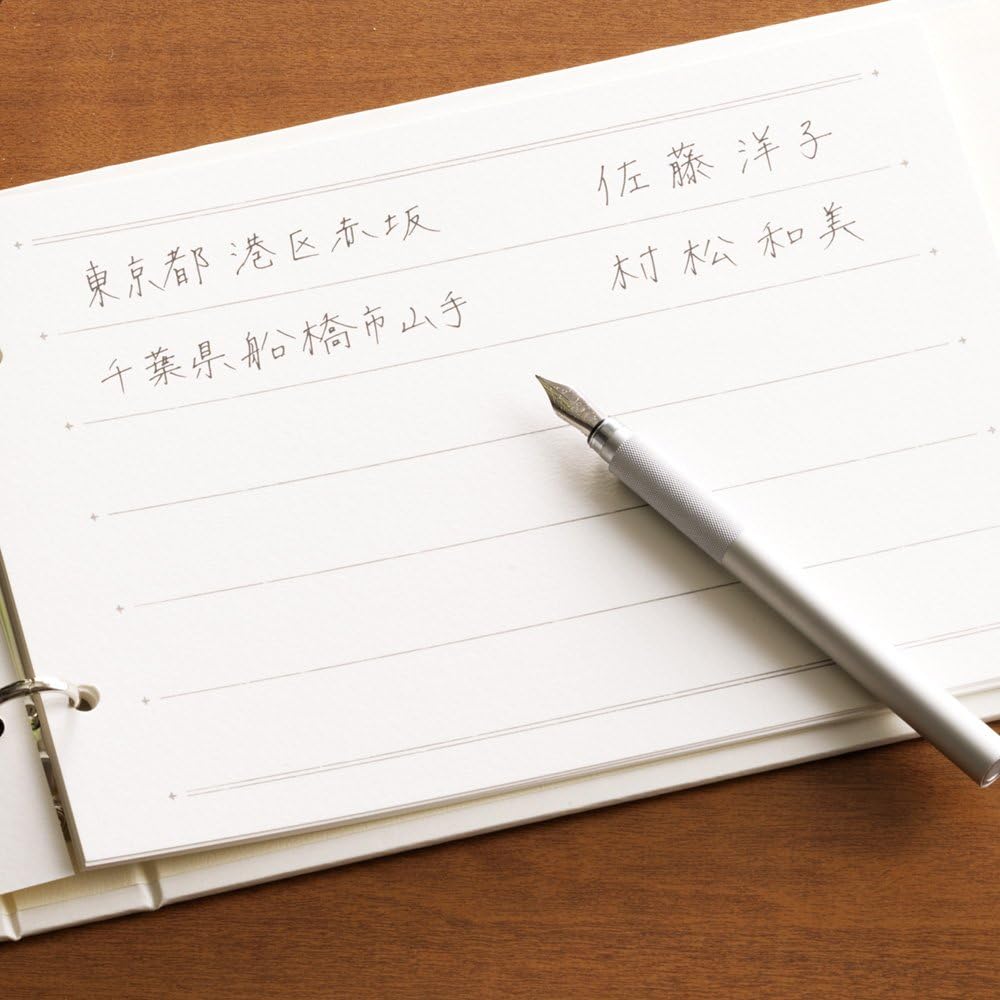 東京都港区赤坂 佐藤洋子
千葉県船橋市山手 村松和美